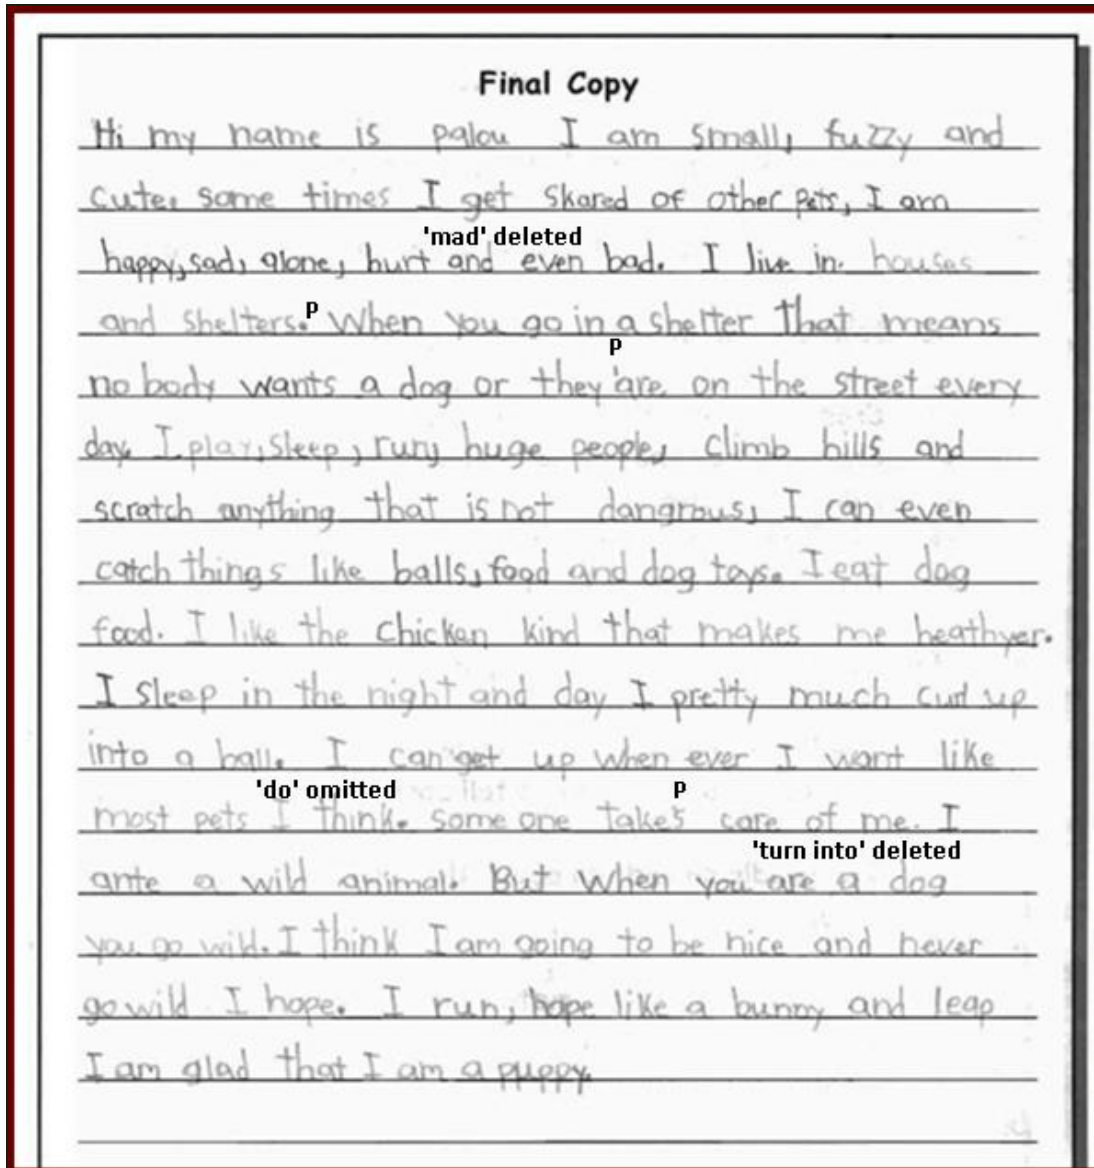 Final Copy
Hi my name is palou I am small, fuzzy and
cute. some times I get skared of other pets, I am
'mad' deleted
happy, sad, alone, hurt and even bad. I live in. houses
P
and shelters. When you go in a shelter that means
P
no body wants a dog or they'are on the street every
day. I play, sleep, run, huge people, climb hills and
scratch anything that is not dangrous, I can even
catch things like balls, food and dog toys. I eat dog
food. I like the chicken kind that makes me heathyer.
I sleep in the night and day I pretty much curl up
into a ball. I can get up when ever I want like
'do' omitted P
most pets I think. some one take's care of me. I
'turn into' deleted
ante a wild animal. But when you are a dog
you go wild. I think I am going to be nice and never
go wild I hope. I run, hope like a bunny and leap
I am glad that I am a puppy.